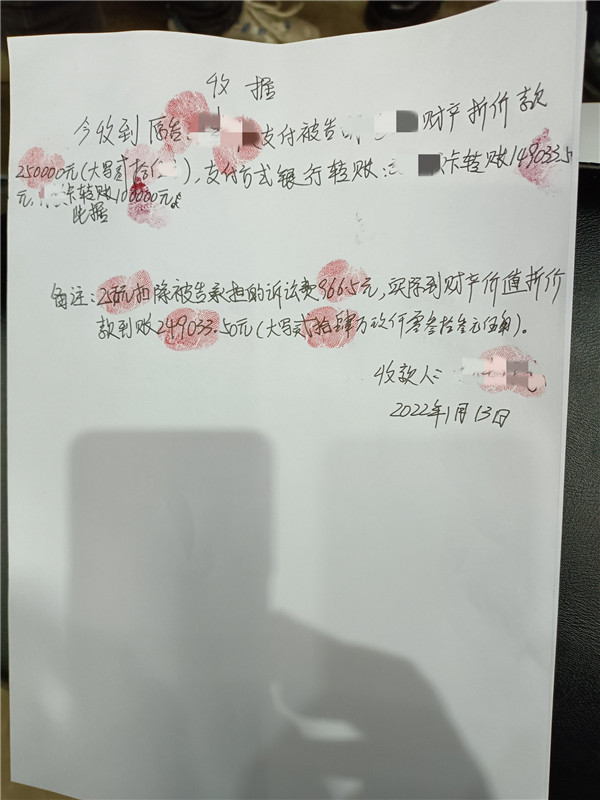 收 据
今收到原告 支付被告 财产折价款
250000元(大写贰拾 ),支付方式银行转账: 卡转账149033.5
元, 卡转账100000元。
此据
备注:25万元扣除被告承担的诉讼费966.5元,实际到财产价值折价
款到账249033.50元(大写贰拾肆万玖仟零叁拾叁元伍角)。
收款人:
2022年1月13日